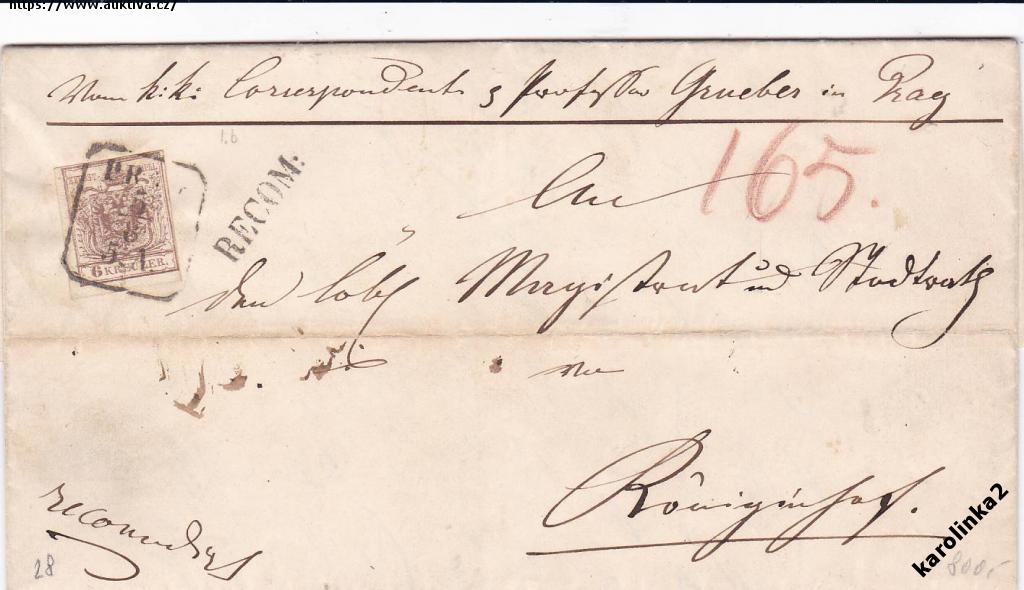 https://www.auktiva.cz/
Vom k: k: Correspondent & Professor Grueber in Prag
1.6
165.
RECOM:
PR
6 KREUZER.
An
den löbl Magistrat und Stadtrath
in
Königinhof.
recomdirt
28
800,-
karolinka2